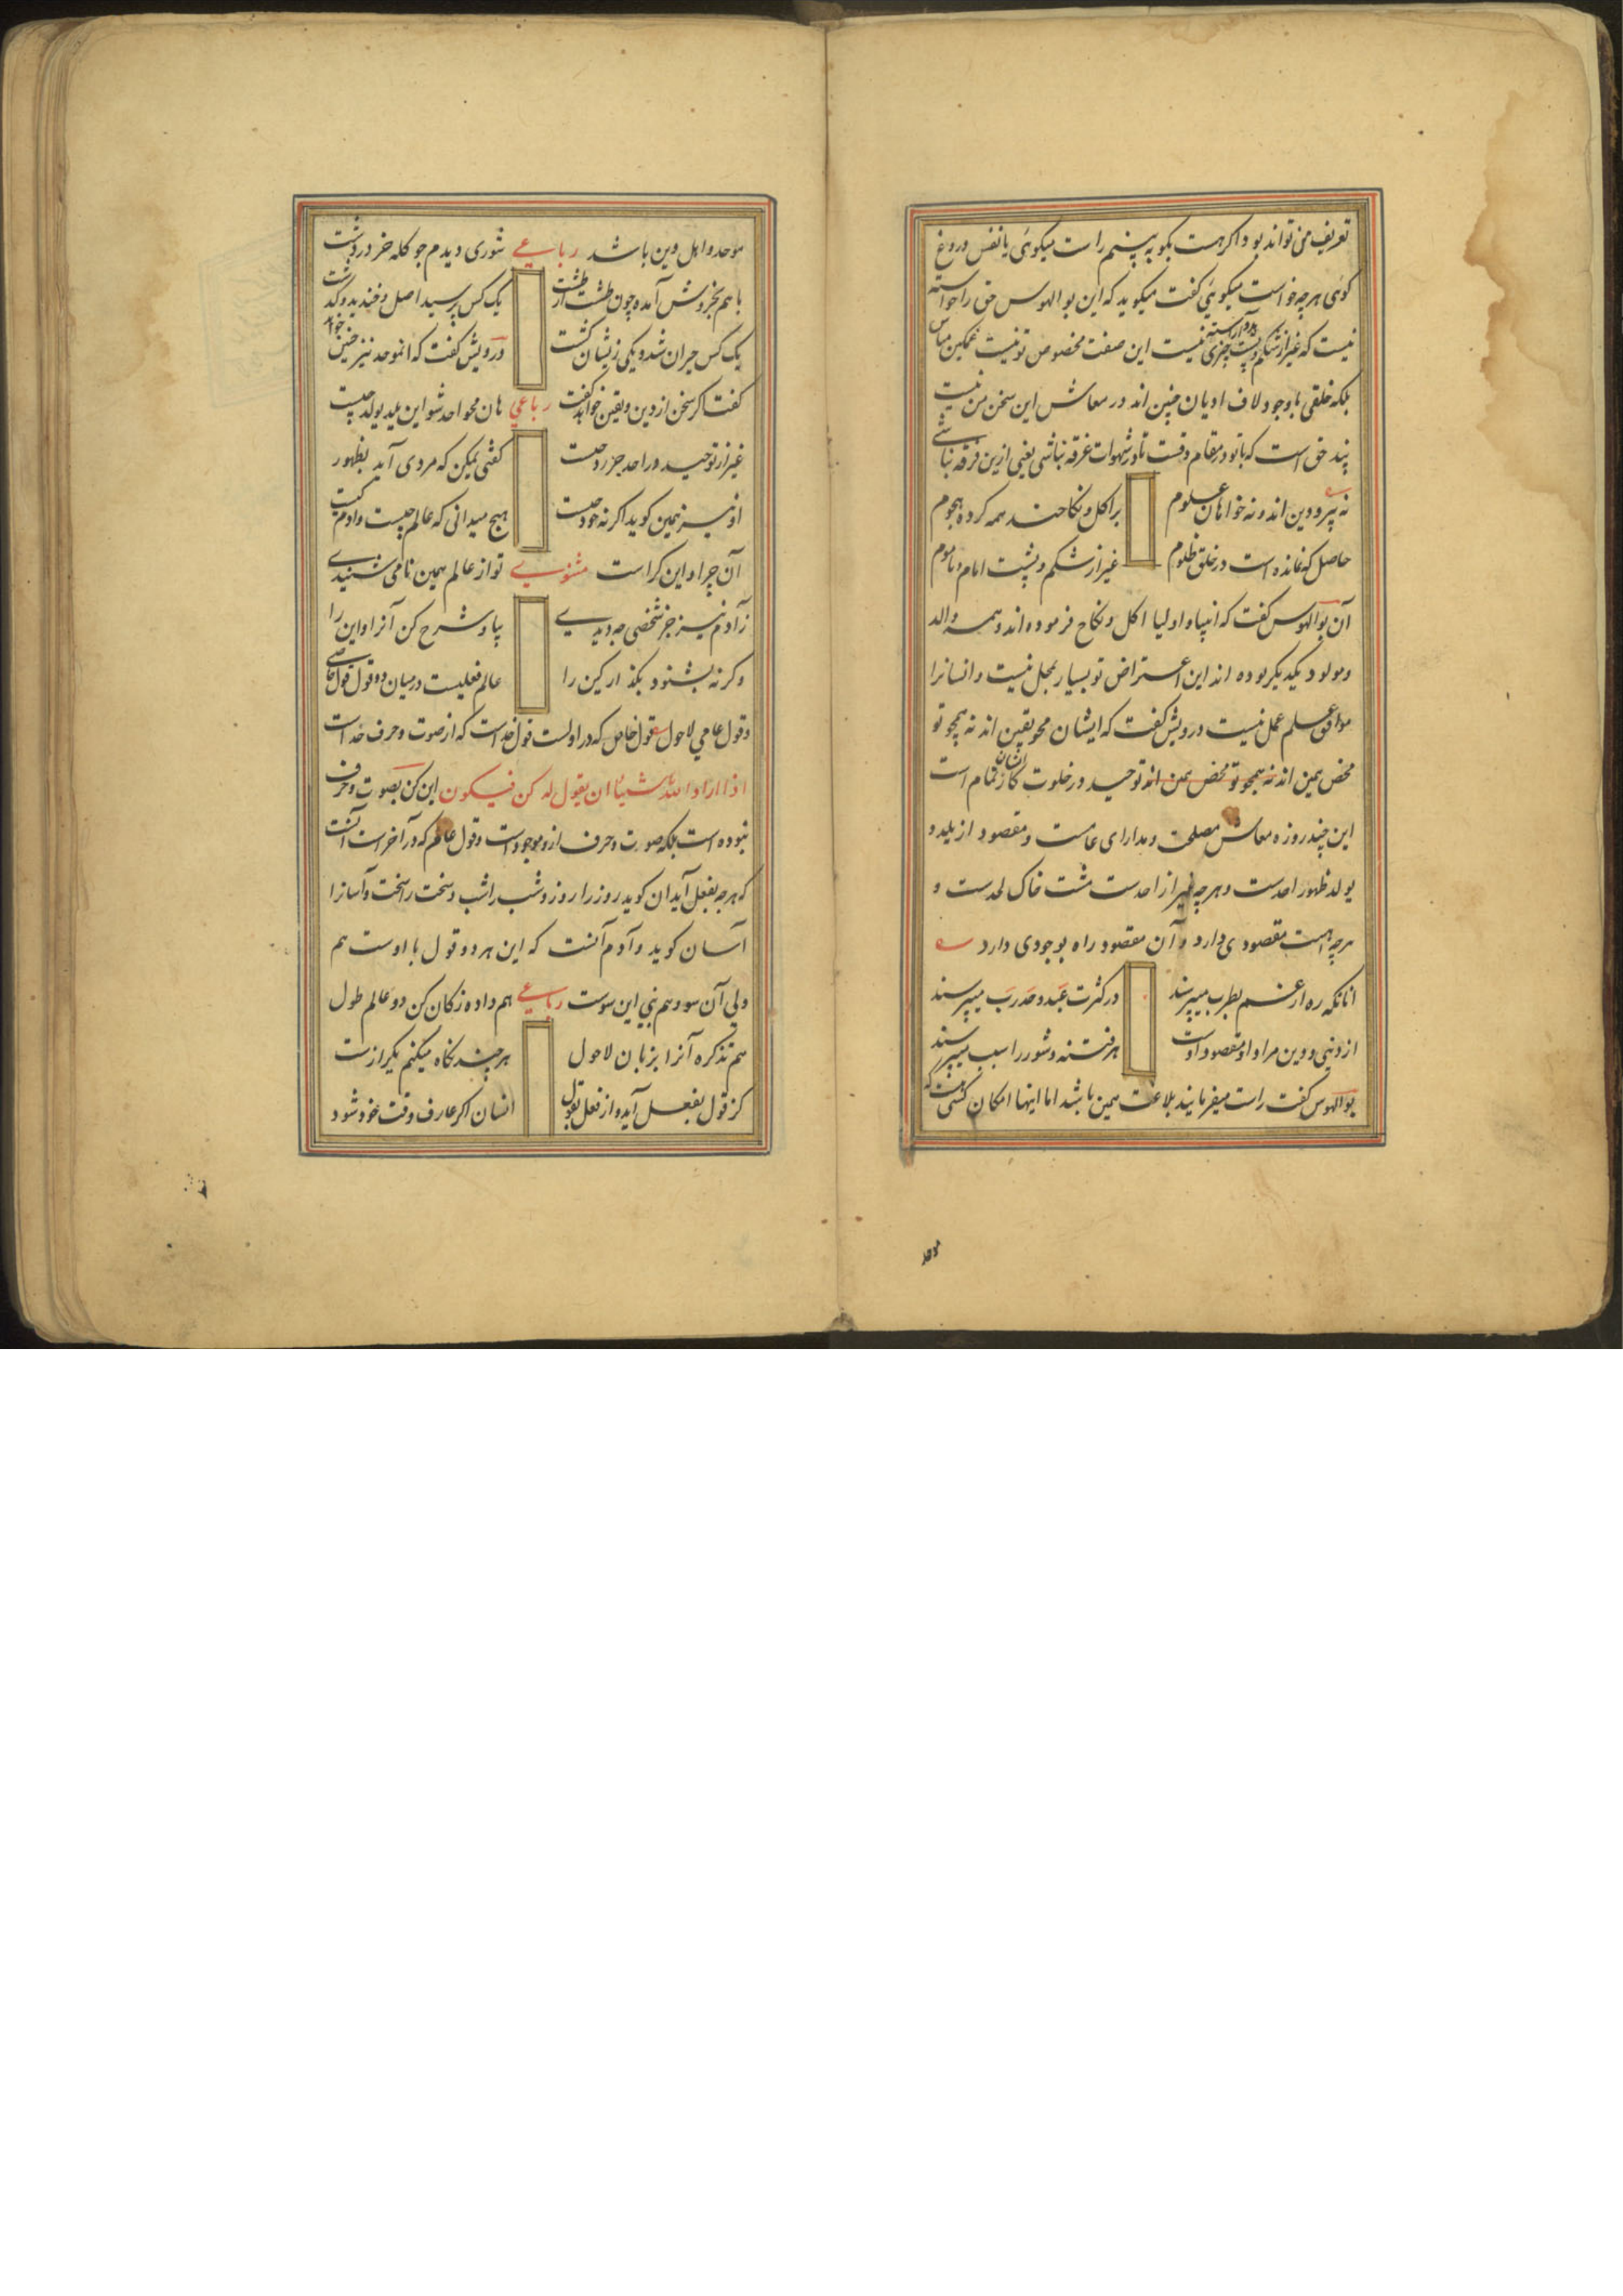 تعریف من تواند بود اکر هست بکو به بینم راست میکوئی یا نفس دروغ
کوئی هرچه خواست میکوئی کفت میکوید که این بو الهوس حق راخواسته
نیست که غیر از شکم و پشت چیزی نیست این صفت مخصوص تو نیست غمکین مباش
بلکه خلقی با وجود لاف ادیان چنین اند در معاش این سخن من نیست
پند حق است که با تو در مقام وقست تا در شهوات غرقه نباشی یعنی ازین فرقه نباشی
نه پیرو دین اند و نه خواهان علوم براکل و نکاحند همه کرده هجوم
حاصل که نمانده است در خلق ظلوم غیر از شکم و پشت امام و ماموم
آن بوالهوس کفت که انبیا و اولیا اکل و نکاح فرموده اند و همه والد
و مولود یکدیکر بوده اند این اعتراض تو بسیار بمحل نیست و انسانرا
موافق علم عمل نیست درویش کفت که ایشان محو یقین اند نه همچو تو
محض همین اند نه همچو تو محض همین اند توحید در خلوت کار تمام است
این چند روزه معاش مصلحت و مدارای عامست و مقصود از یلد و
یولد ظهور احدست و هرچه غیر از احدست مشت خاک لحدست و
هرچه هست مقصودی دارد و آن مقصود راه بوجودی دارد
انانکه ره از غم بطرب میپرسند در کثرت عبد وحدت رب میپرسند
از دنیی و دین مراد او مقصود اوست هر فتنه و شور را سبب میپرسند
بوالهوس کفت راست میفرمایند بلاغت همین باشد اما اینها امکان کفتی هست که
موحد و اهل دین باشد رباعی شوری دیدم جو کله خر در دشت
با هم بخروش آمده چون طشت از طشت یک کس پرسید اصل و خندید و کذشت
یک کس حیران شد و یکی زیشان کشت درویش کفت که انموحد نیز چنین خواهد
کفت اکر سخن از دین و یقین خواهد کفت رباعی هان محو احد شو این یلد یولد چیست
غیر از توحید در احد جز رد چیست کفتی ممکن که مردی آید بظهور
او نیز همین کوید اکر نه خود چیست هیچ میدانی که عالم چیست و ادم کیست
آن چرا و این کراست مثنوی تو از عالم همین نامی شنیدی
ز آدم نیز جز شخصی چه دیدی بیا و شرح کن آنرا و این را
وکرنه بشنو و بکذار کین را عالم فعلیست درمیان دو قول قول خاصی
و قول عامی لا حول قول خاص که در اولست قول خداست که از صوت و حرف خداست
اذا اراد الله شیئا ان یقول له کن فیکون این کن بصوت و حرف
نبوده است بلکه صورت و حرف ازو موجود است و قول عالم که در آخر است آنست
که هرچه بفعل آید ان کوید روز را روز و شب را شب و سخت را سخت و آسانرا
آسان کوید و آدم آنست که این هر دو قول با اوست هم
ولی آن سو و هم نبی این سوست رباعی هم داده ز کان کن دو عالم طول
هم تذکره آنرا بزبان لاحول هر چند نکاه میکنم یکرازست
کز قول بفعل آید و از فعل بقول انسان اکر عارف وقت خود شود